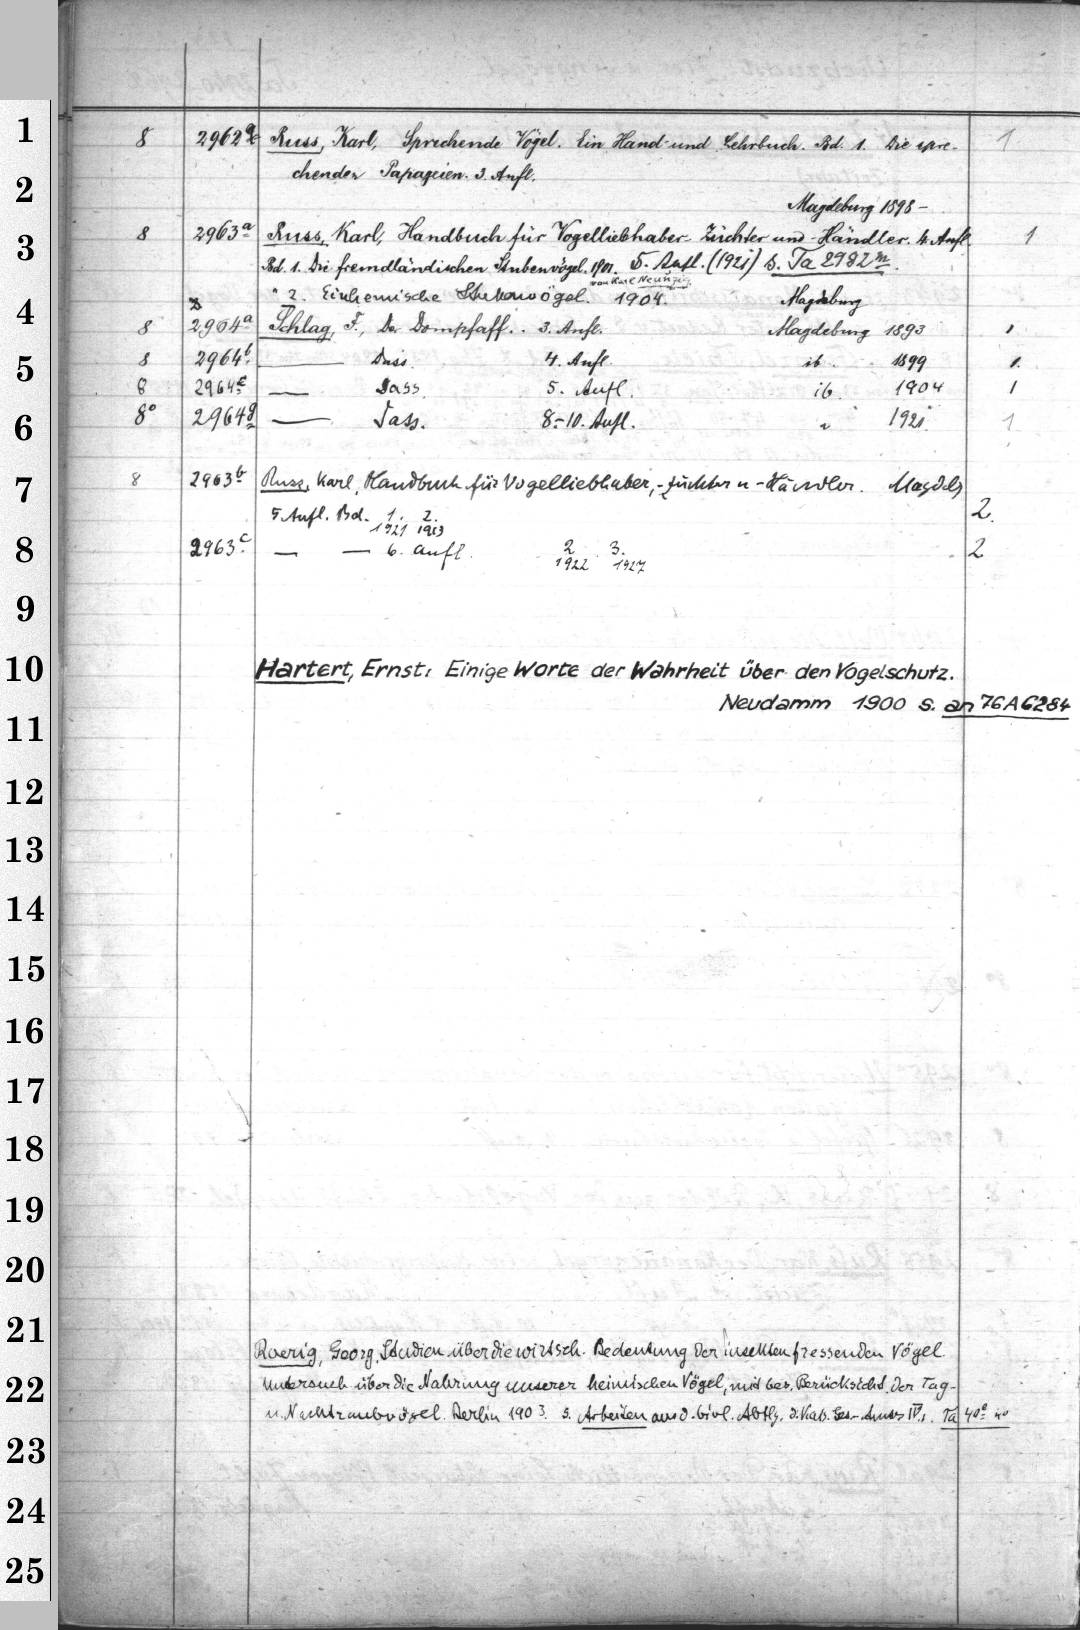 1
8 2962 Russ, Karl, Sprechende Vögel. Ein Hand- und Lehrbuch. Bd. 1. Die spre- 1
chenden Papageien. 3. Aufl.
2
Magdeburg 1898 -
3
8 2963a Russ, Karl, Handbuch für Vogelliebhaber Züchter und Händler. 4. Aufl. 1
Bd. 1. Die fremdländischen Stubenvögel. 1901. 5. Aufl. (1921) s. Ta 2982m.
von Karl Neunzig
" 2. Einheimische Stubenvögel. 1904. Magdeburg
4
8 2964a Schlag, F., Der Dompfaff.. 3. Aufl. Magdeburg 1893 1
5
8 2964b — Dass. 4. Aufl. ib. 1899 1
8 2964c — Dass. 5. Aufl. ib. 1904 1
6
8° 2964g — Dass. 8-10. Aufl. 1921. 1
7
8 2963b Russ, Karl, Handbuch für Vogelliebhaber, -züchter u -Händler. Magdeb
5 Aufl. Bd. 1. 2. 2.
1921 1913
8
2963c — — 6. Aufl. 2. 3. 2
1922 1927
9
10
Hartert, Ernst: Einige Worte der Wahrheit über den Vogelschutz.
Neudamm 1900 s. an 76A6284
11
12
13
14
15
16
17
18
19
20
21
Roerig, Georg, Studien über die wirtsch. Bedeutung der insektenfressenden Vögel.
22
Untersuch über die Nahrung unserer heimischen Vögel, mit bes. Berücksicht. der Tag-
u. Nachtraubvögel. Berlin 1903. s. Arbeiten aus d. biol. Abtlg. d. Kais. Ges.-Amtes IV,1. Ta 40e
23
24
25